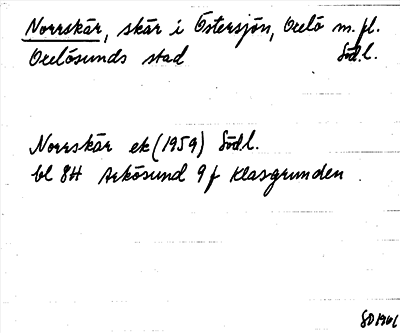 Norrskär, skär i Östersjön, Oxelö m. fl.
Oxelösunds stad Södl.
Norrskär ek (1959) Södl.
bl 8H Arkösund 9 f Klasgrunden
SD 1961